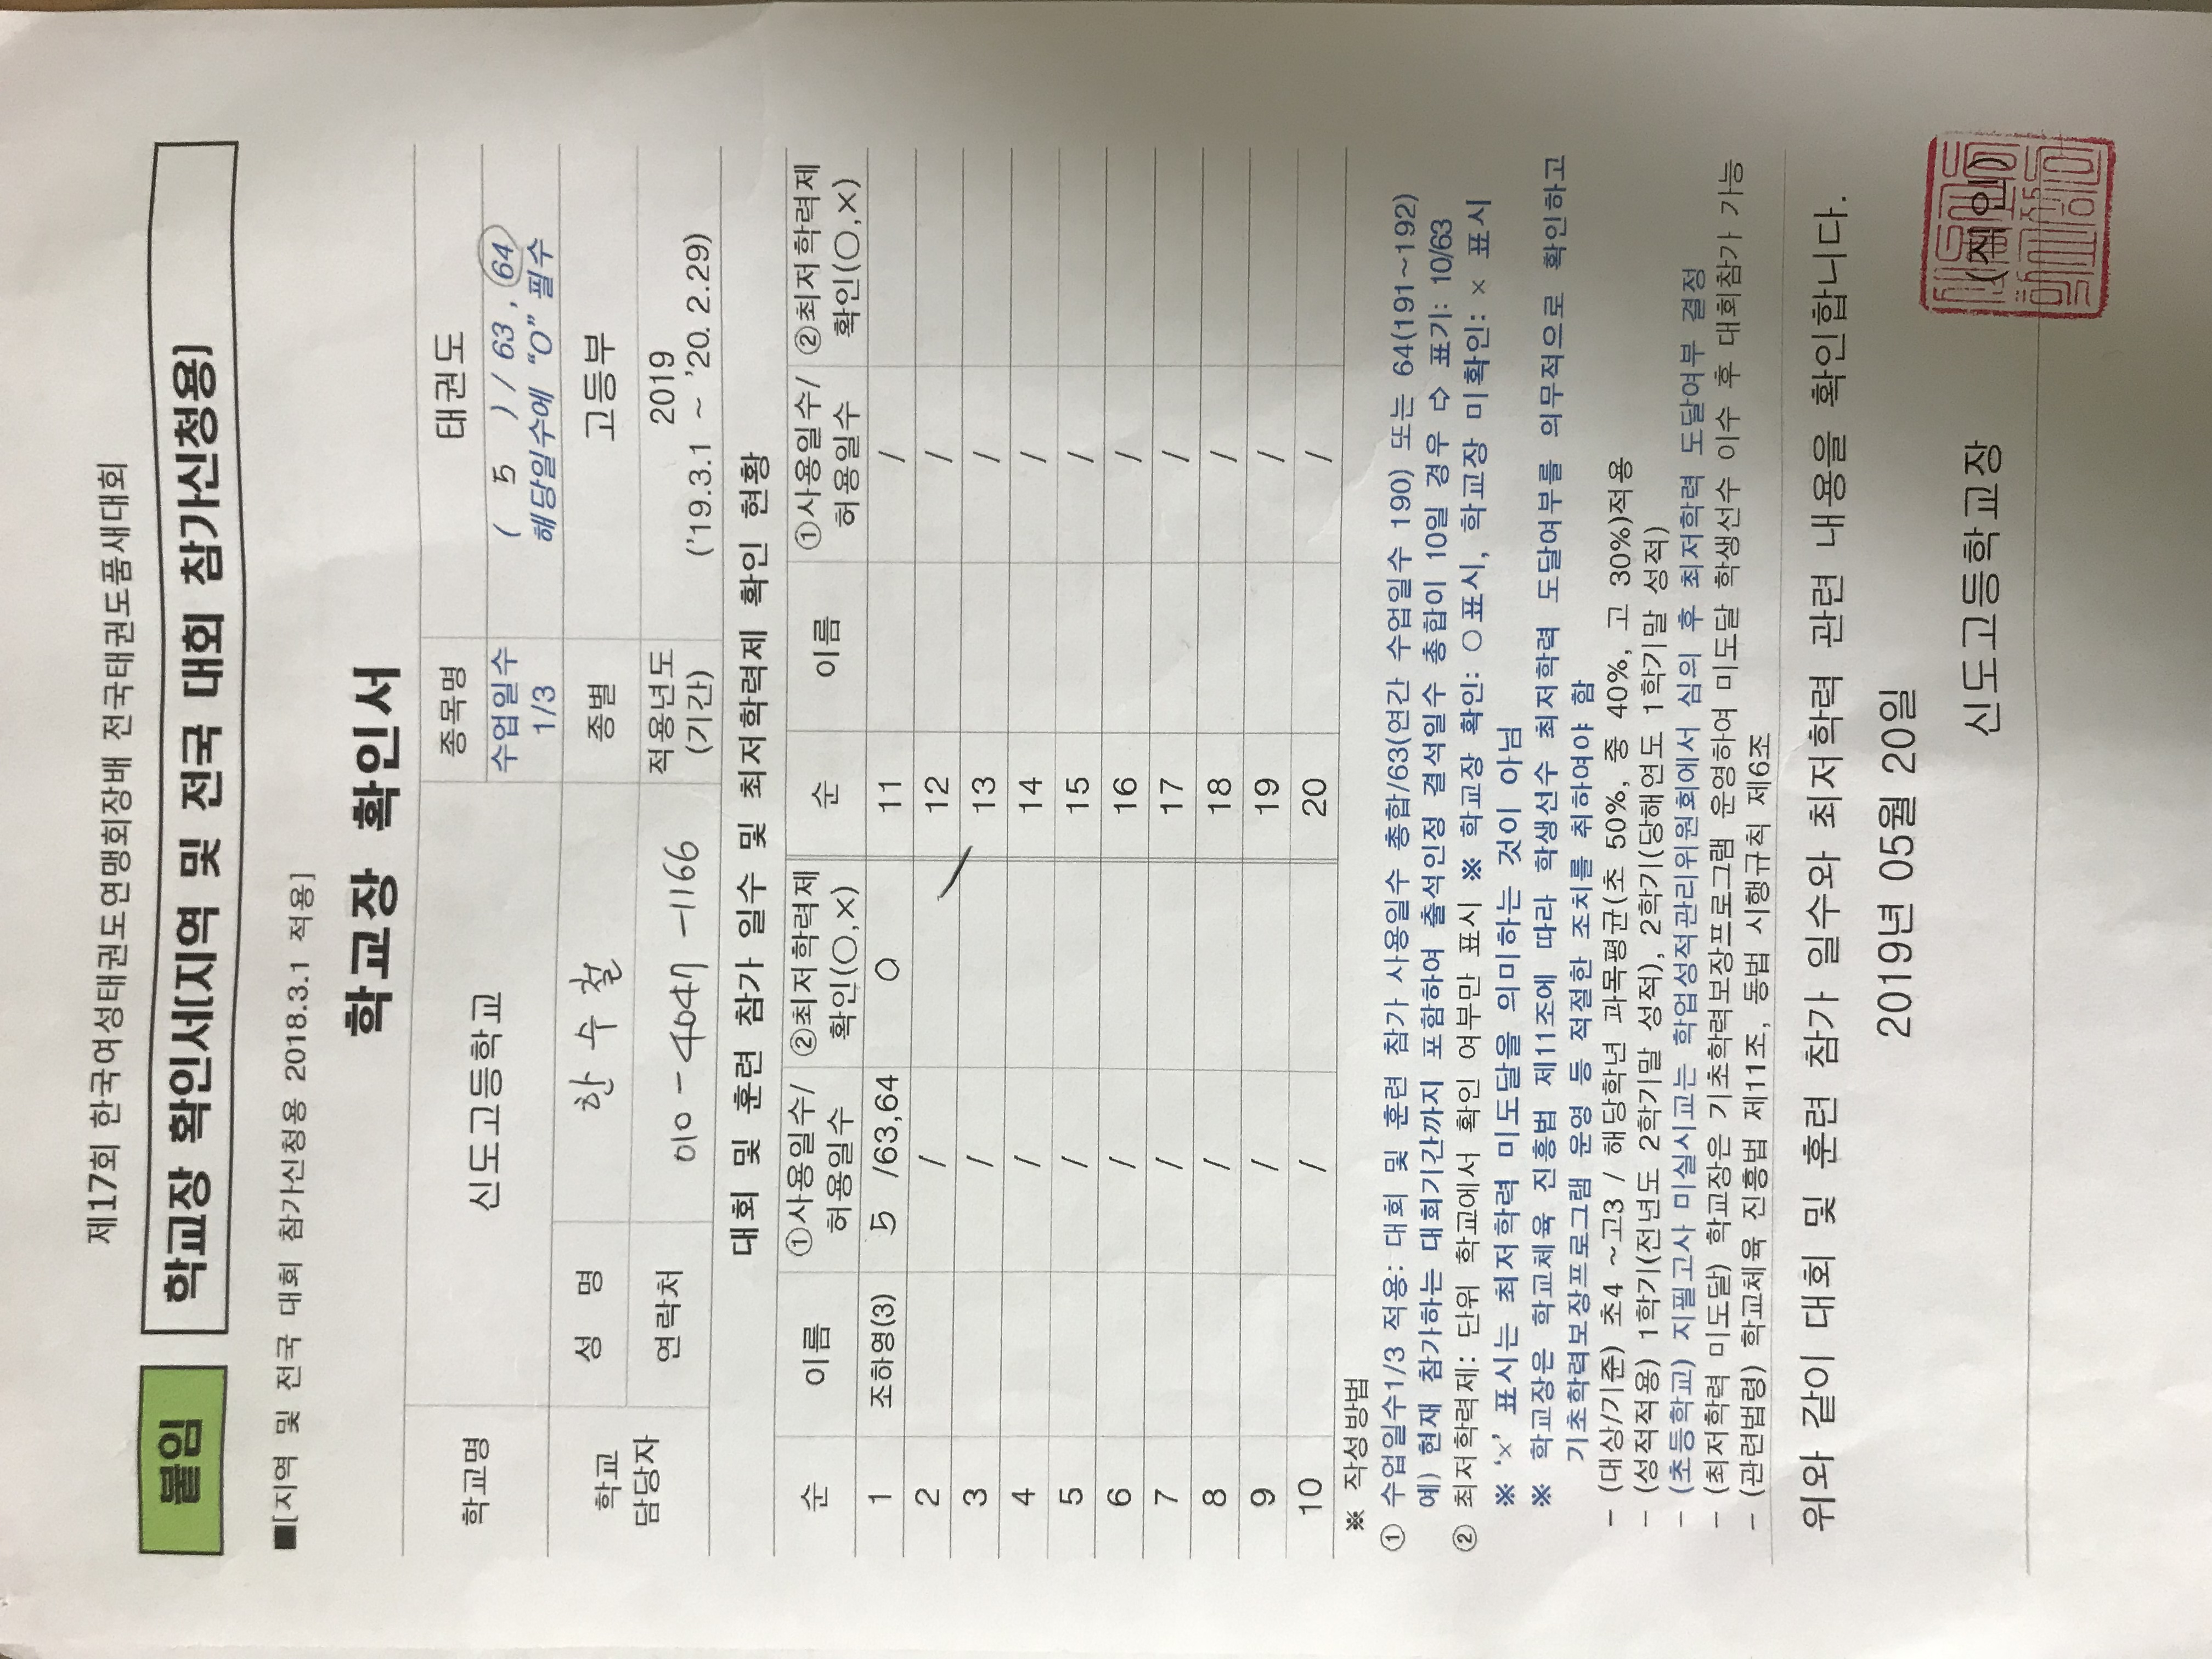 제17회 한국여성태권도연맹회장배 전국태권도품새대회
붙임 학교장 확인서[지역 및 전국 대회 참가신청용]
■[지역 및 전국 대회 참가신청용 2018.3.1 적용]
학교장 확인서
학교명 신도고등학교 종목명 태권도
수업일수 1/3 ( 5 ) / 63 , 64
해당일수에 “O” 필수
학교 담당자 성 명 한수철 종별 고등부
연락처 010-4047-1166 적용년도 (기간) 2019
('19.3.1 ~ '20.2.29)
대회 및 훈련 참가 일수 및 최저학력제 확인 현황
순 이름 ①사용일수/허용일수 ②최저학력제 확인(○,×) 순 이름 ①사용일수/허용일수 ②최저학력제 확인(○,×)
1 조하영(3) 5 /63,64 O 11 /
2 / 12 /
3 / 13 /
4 / 14 /
5 / 15 /
6 / 16 /
7 / 17 /
8 / 18 /
9 / 19 /
10 / 20 /
※ 작성방법
① 수업일수1/3 적용: 대회 및 훈련 참가 사용일수 총합/63(연간 수업일수 190) 또는 64(191~192)
예) 현재 참가하는 대회기간까지 포함하여 출석인정 결석일수 총합이 10일 경우 ⇨ 표기: 10/63
② 최저학력제: 단위 학교에서 확인 여부만 표시 ※ 학교장 확인: ○표시, 학교장 미확인: × 표시
※ ‘×’ 표시는 최저학력 미도달을 의미하는 것이 아님
※ 학교장은 학교체육 진흥법 제11조에 따라 학생선수 최저학력 도달여부를 의무적으로 확인하고
기초학력보장프로그램 운영 등 적절한 조치를 취하여야 함
- (대상/기준) 초4 ~고3 / 해당학년 과목평균(초 50%, 중 40%, 고 30%)적용
- (성적적용) 1학기(전년도 2학기말 성적), 2학기(당해연도 1학기말 성적)
- (초등학교) 지필고사 미실시교는 학업성적관리위원회에서 심의 후 최저학력 도달여부 결정
- (최저학력 미도달) 학교장은 기초학력보장프로그램 운영하여 미도달 학생선수 이수 후 대회참가 가능
- (관련법령) 학교체육 진흥법 제11조, 동법 시행규칙 제6조
위와 같이 대회 및 훈련 참가 일수와 최저학력 관련 내용을 확인합니다.
2019년 05월 20일
신도고등학교장 (직인)